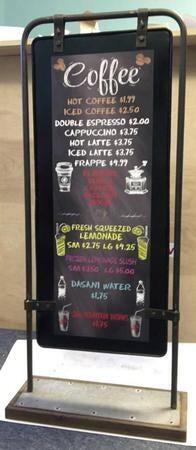 Coffee
HOT COFFEE $1.99
ICED COFFEE $2.50
DOUBLE ESPRESSO $2.00
CAPPUCCINO $3.75
HOT LATTE $3.75
ICED LATTE $3.75
FRAPPE $4.99
FRESH SQUEEZED
LEMONADE
SM $2.75 LG $4.25
FROZEN LEMONADE SLUSH
SM $3.50 LG $5.00
DASANI WATER
$1.75
FOUNTAIN DRINKS
$1.75